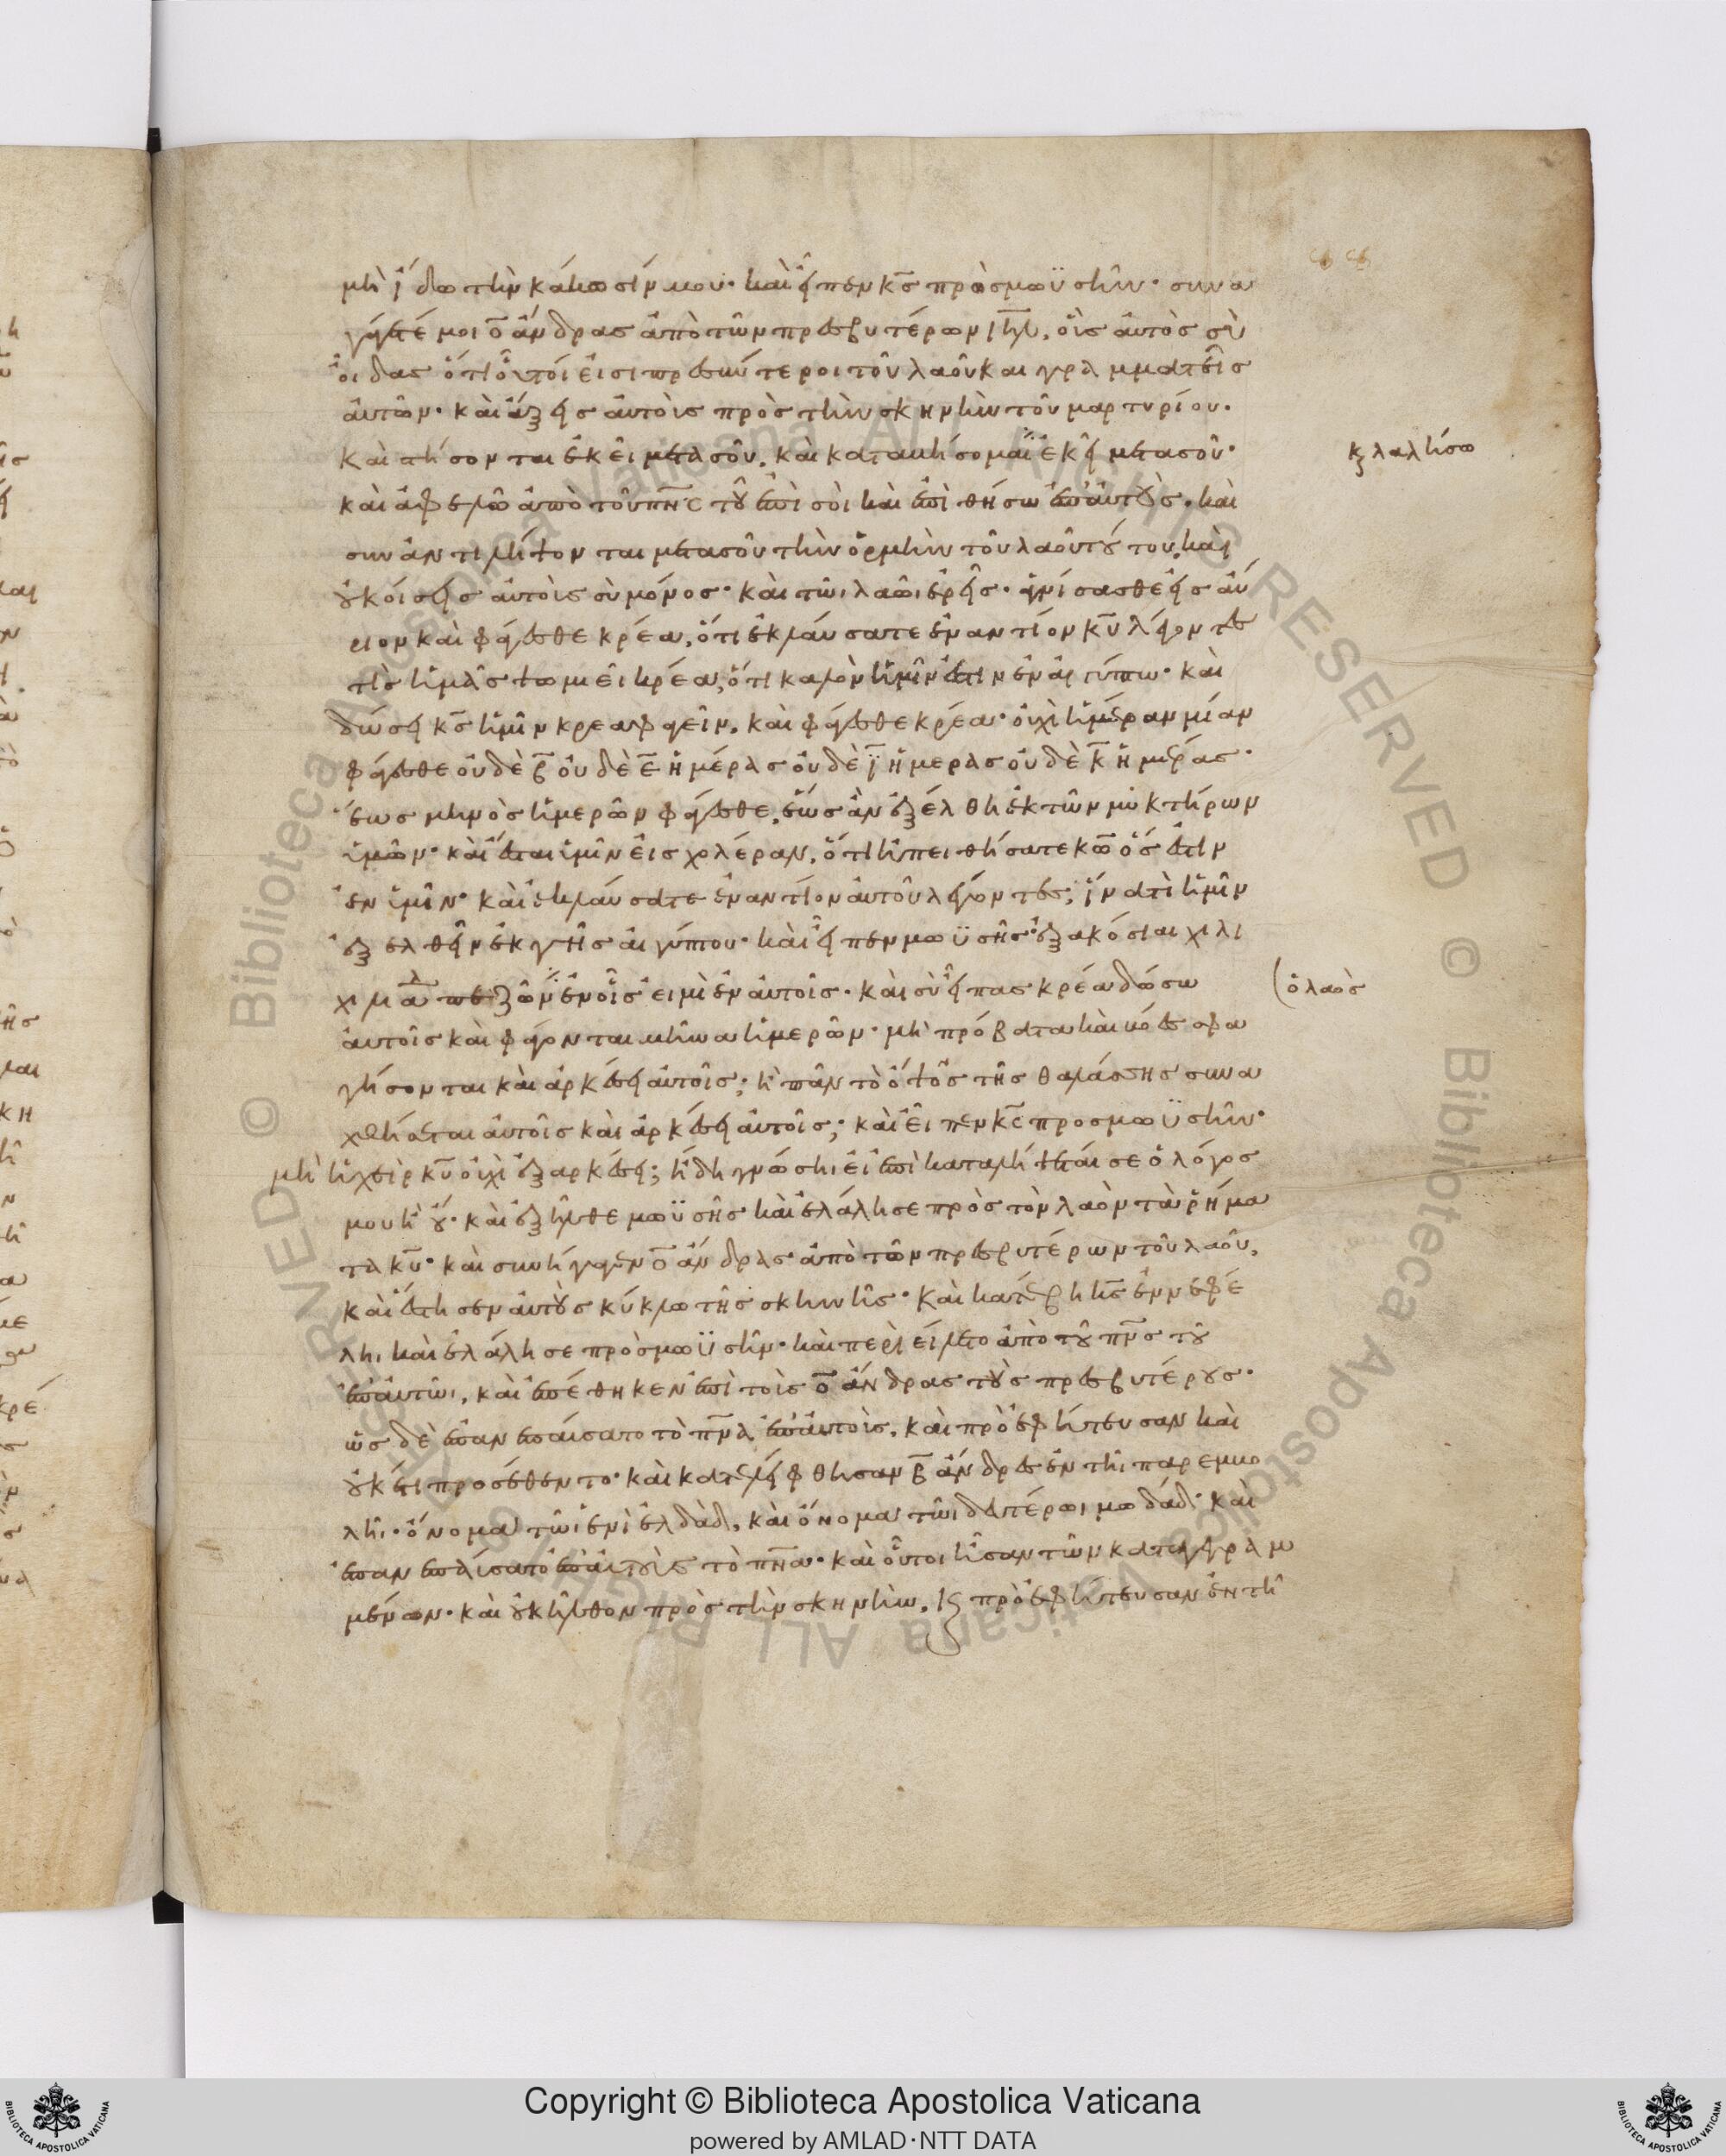 μὴ ἴδω τὴν κάκωσίν μου· καὶ εἶπεν κ̅ς̅ πρὸς μωϋσῆν· συνα
γάγετέ μοι ο̅ ἄνδρας ἀπὸ τῶν πρεσβυτέρων ι̅η̅λ̅, οἷς αὐτὸς σὺ
οἶδας ὅτι οὗτοί εἰσι πρεσβύτεροι τοῦ λαοῦ και γραμματεῖς
αὐτῶν· καὶ ἄξεις αὐτοὶς πρὸς τὴν σκηνὴν τοῦ μαρτυρίου.
καὶ στήσονται ἐκεῖ μετὰ σοῦ. καὶ καταβήσομαι ἐκεῖ μετα σοῦ·
κ λαλήσω
καὶ ἀφελῶ ἀπὸ τοῦ π̅ν̅ς̅ τοῦ ἐπὶ σοὶ καὶ ἐπιθήσω ἐπ' αὐτοὺς. καὶ
συναντιλήψονται μετα σοῦ τὴν ὁρμὴν τοῦ λαοῦ τούτου, καὶ
οὐκ οἴσεις αὐτοὶς σὺ μόνος· καὶ τῶι λαῶι ἐρεῖς· ἁγνίσασθε εἰς αὔ
ριον καὶ φάγεσθε κρέα, ὅτι ἐκλαύσατε ἐναντίον κ̅υ̅ λέγοντες
τίς ἡμᾶς ψωμιεῖ κρέα, ὅτι καλὸν ἡμῖν ἐστιν ἐν αἰγύπτω· καὶ
δώσει κ̅ς̅ ἡμῖν κρεα φαγεῖν. καὶ φάγεσθε κρέα· οὐχὶ ἡμέραν μίαν
φάγεσθε οὐδὲ β̅ οὐδὲ ε̅ ἡμέρας οὐδὲ ι̅ ἡμερας οὐδὲ κ̅ ἡμέρας·
ἕως μηνὸς ἡμερῶν φάγεσθε, ἕως ἂν ἐξέλθη ἐκ τῶν μυκτήρων
ὑμῶν· καὶ ἔσται ὑμῖν εἰς χολέραν, ὅτι ἠπειθήσατε κ̅ω̅ ὅς ἐστιν
ἐν ὑμῖν· καὶ ἐκλαύσατε ἐναντίον αὐτοῦ λέγοντες; ἵνα τὶ ἡμῖν
ἐξελθεῖν ἐκ γῆς αἰγύπτου· καὶ εἶπεν μωϋσῆς· ἑξακόσιαι χιλι
χιλιαδ πεζῶν ἐν οἷς εἰμὶ ἐν αὐτοῖς· καὶ σὺ εἶπας κρέα δώσω
(ὁ λαὸς
αὐτοῖς καὶ φάγονται μῆνα ἡμερῶν· μὴ πρόβατα καὶ βόες σφα
γήσονται καὶ ἀρκέσει αὐτοῖς; ἢ πᾶν τὸ ὄψος τῆς θαλάσσης συνα
χθήσεται αὐτοῖς καὶ ἀρκέσει αὐτοῖς; καὶ εἶπεν κ̅ς̅ προς μωϋσῆν·
μὴ ἡ χεὶρ κ̅υ̅ οὐχὶ ἐξαρκέσει; ἤδη γνώσηι εἰ ἐπικαταλήψεταί σε ὁ λόγος
μου ἢ οὔ· καὶ ἐξῆλθε μωϋσῆς καὶ ἐλάλησε πρὸς τὸν λαὸν τὰ ῥήμα
τα κ̅υ̅· καὶ συνήγαγεν ο̅ ἄνδρας ἀπὸ τῶν πρεσβυτέρων τοῦ λαοῦ,
καὶ ἔστησεν αὐτοὺς κύκλω τῆς σκηνῆς· καὶ κατέβη κ̅ς̅ ἐν νεφέ
ληι καὶ ἐλάλησε πρὸς μωϋσῆν· καὶ περιείλετο ἀπὸ τοῦ π̅ν̅ς̅ τοῦ
ἐπ' αὐτῶι, καὶ ἐπέθηκεν ἐπὶ τοὶς ο̅ ἄνδρας τοὺς πρεσβυτέρους·
ὡς δὲ ἐπανεπαύσατο τὸ π̅ν̅α̅ ἐπ' αὐτοὶς, καὶ προεφήτευσαν καὶ
οὐκέτι προσέθεντο· καὶ κατελείφθησαν β̅ ἄνδρες ἐν τῆι παρεμβο
λῆι· ὄνομα τῶι ἑνὶ ἐλδὰδ, καὶ ὄνομα τῶι δευτέρωι μωδάδ· καὶ
ἐπανεπαύσατο ἐπ' αὐτοὺς τὸ π̅ν̅α̅· καὶ οὗτοι ἦσαν τῶν καταγεγραμ
μένων· καὶ οὐκ ἦλθον πρὸς τὴν σκηνὴν, κ προεφήτευσαν ἐν τῆ